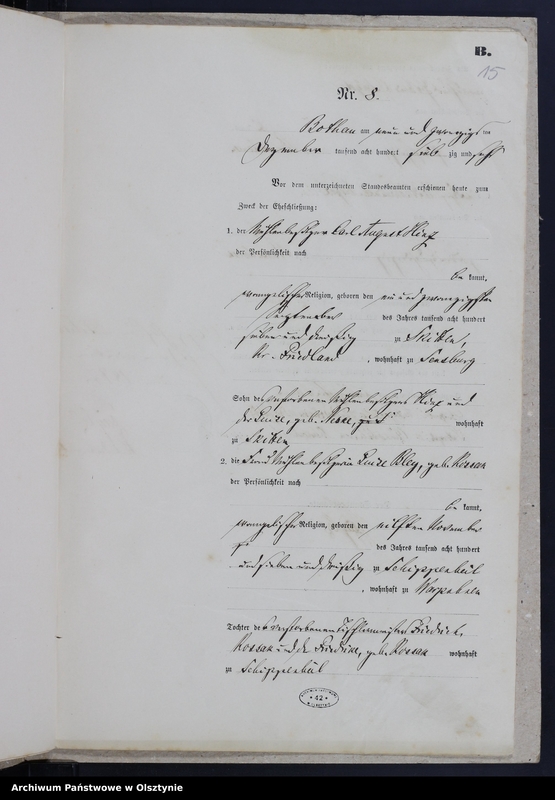 B.
15
Nr. 8.
Rothau am neun und zwanzigsten
Dezember tausend acht hundert siebzig und sechs
Vor dem unterzeichneten Standesbeamten erschienen heute zum
Zweck der Eheschließung:
1. der Mühlenbesitzer Carl August
der Persönlichkeit nach
bekannt,
evangelischer Religion, geboren den ein und zwanzigsten
September des Jahres tausend acht hundert
sieben und dreißig zu Skitten,
Kr. Friedland, wohnhaft zu Sensburg
Sohn des verstorbenen Mühlenbesitzers und
der Luise, geb. wohnhaft
zu Skitten
2. die Frau Mühlenbesitzerin Luise Bley, geb. Kossak
der Persönlichkeit nach
bekannt,
evangelischer Religion, geboren den elften November
des Jahres tausend acht hundert
und sieben und dreißig zu Schippenbeil
, wohnhaft zu
Tochter des verstorbenen Tischlermeisters Friedrich
Kossak und der Friedrike, geb. Kossak wohnhaft
zu Schippenbeil
42
Archiwum Państwowe w Olsztynie